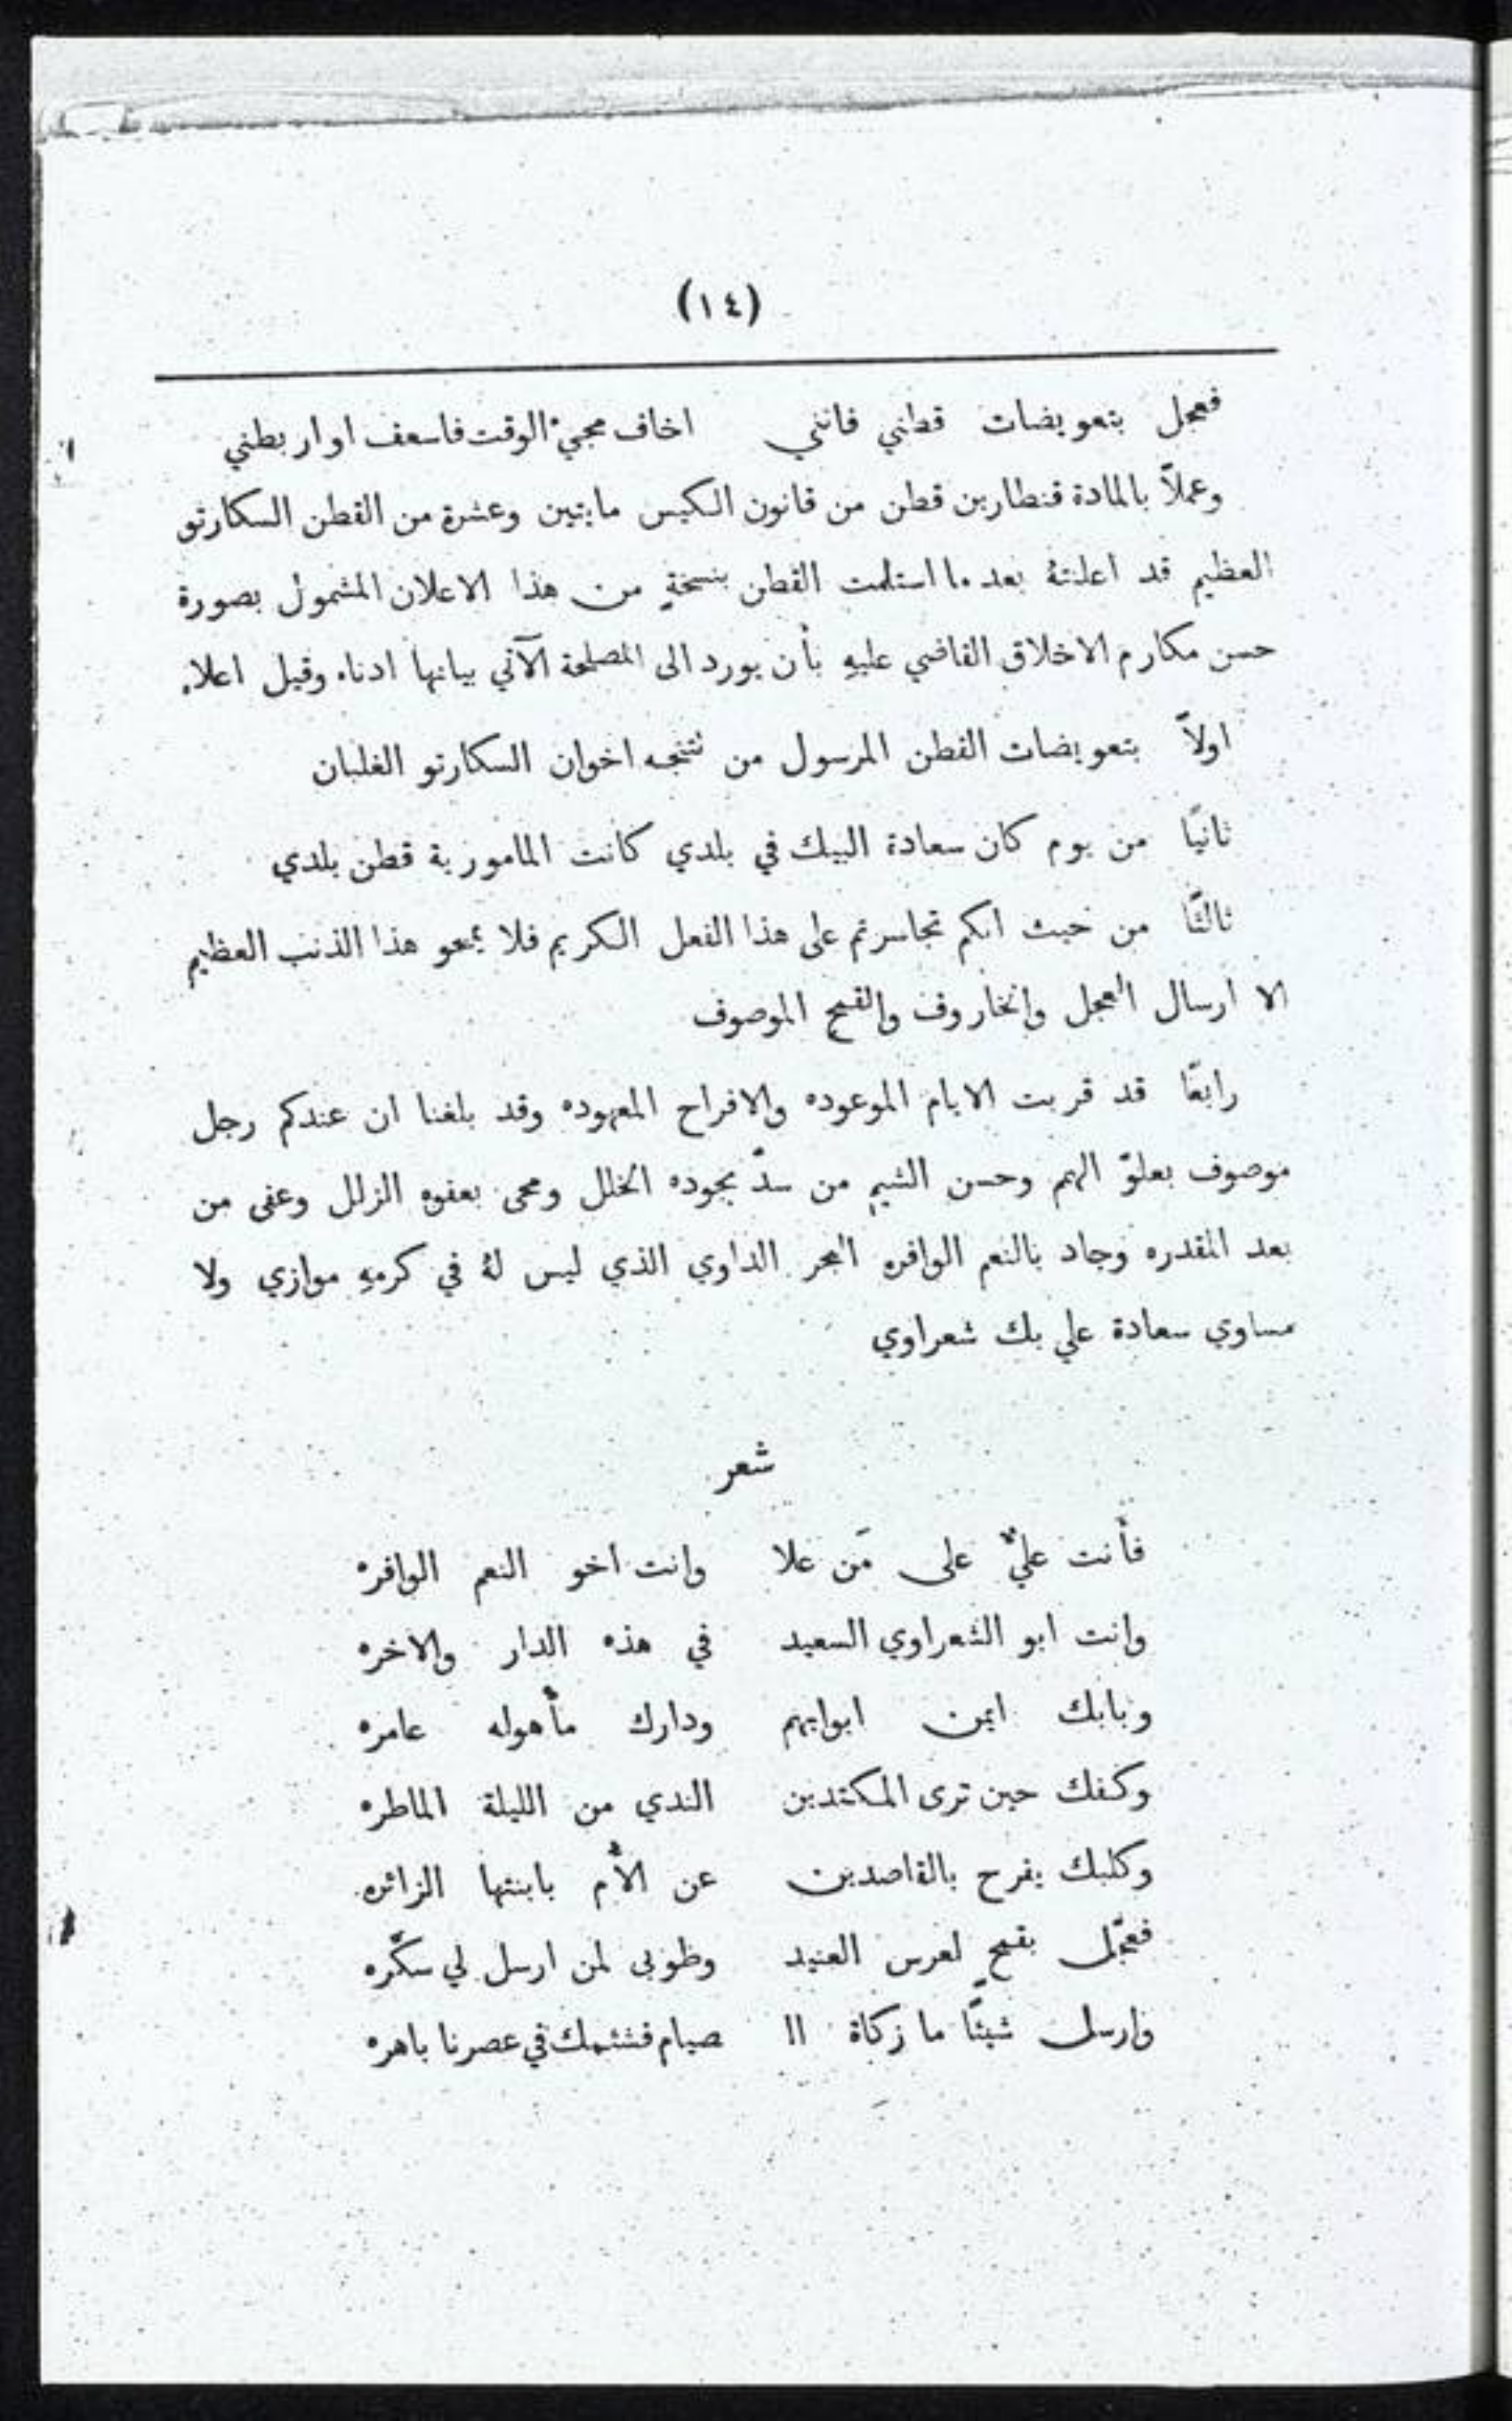 (١٤)
فعجل بتعويضات قطني فانني اخاف مجيء الوقت فاسعف او اربطني
وعملاً بالمادة قنطارين قطن من قانون الكيس مايتين وعشرة من القطن السكارتو
العظيم قد اعلنتهُ بعد ما استلمت القطن بنسخةٍ من هذا الاعلان المشمول بصورة
حسن مكارم الاخلاق القاضي عليهِ بأن يورد الى المصلحة الآتي بيانها ادناه وقيل اعلاه
اولاً بتعويضات القطن المرسول من اخوان السكارتو الغلبان
ثانيًا من يوم كان سعادة البيك في بلدي كانت المامورية قطن بلدي
ثالثًا من حيث انكم تجاسرتم على هذا الفعل الكريم فلا يمحو هذا الذنب العظيم
الا ارسال العجل والخاروف والقمح الموصوف
رابعًا قد قربت الايام الموعوده والافراح المعهوده وقد بلغنا ان عندكم رجل
موصوف بعلوّ الهمم وحسن الشيم من سدّ بجوده الخلل ومحى بعفوه الزلل وعفى من
بعد المقدره وجاد بالنعم الوافره البحر الداوي الذي ليس لهُ في كرمهِ موازي ولا
مساوي سعادة علي بك شعراوي
شعر
فأنت عليٌّ على مَن علا وانت اخو النعم الوافره
وانت ابو الشعراوي السعيد في هذه الدار والاخره
وبابك ايمن ابوابهم ودارك مأهوله عامره
وكفك حين ترى المكتدين الندي من الليلة الماطره
وكلبك يفرح بالقاصدين عن الأم بابنتها الزائره
فعجّل بقمحٍ لعرس العنيد وطوبى لمن ارسل لي سكّره
وارسل شيئًا ما زكاة ال صيام في عصرنا باهره